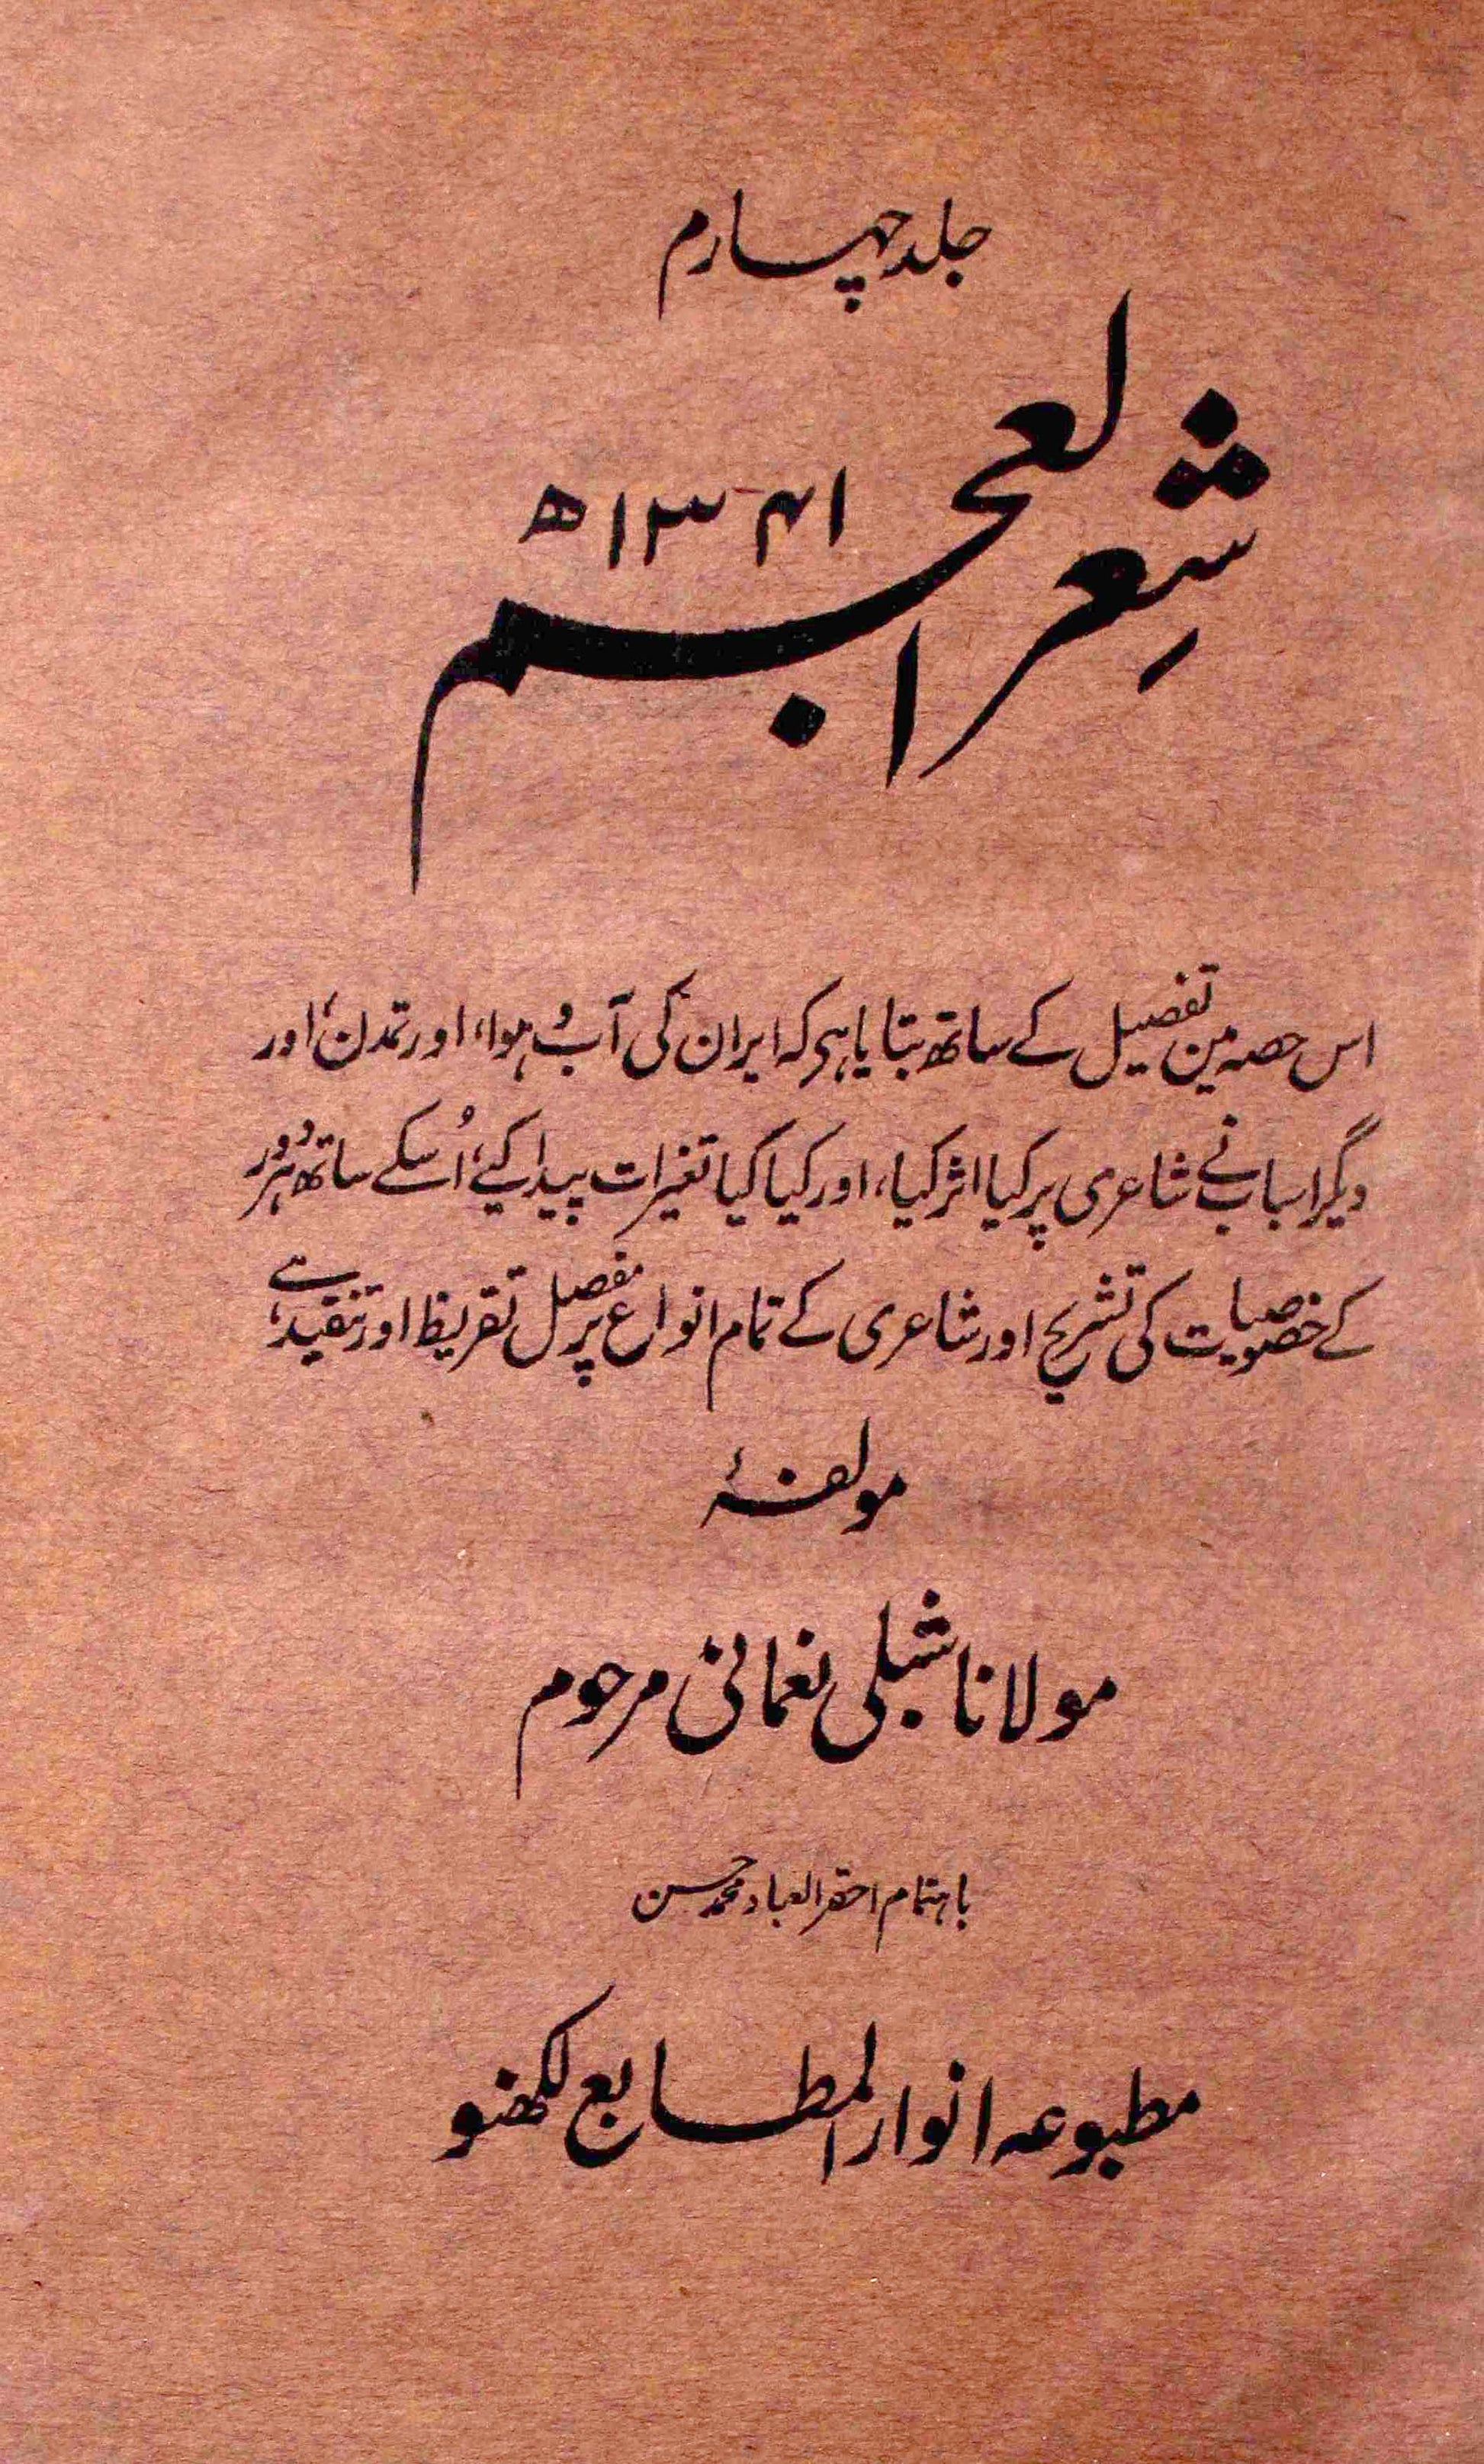 جلد چہارم
شعر العجم
۱۳۴۱ھ
اس حصہ مین تفصیل کے ساتھ بتایا ہی کہ ایران کی آب و ہوا، اور تمدن، اور
دیگر اسباب نے شاعری پر کیا اثر کیا، اور کیا کیا تغیرات پیدا کیے، اُسکے ساتھ ہر دور
کے خصوصیات کی تشریح اور شاعری کے تمام انواع پر مفصل تقریظ اور تنقید ہے
مولفۂ
مولانا شبلی نعمانی مرحوم
باہتمام احقر العباد محمد حسن
مطبوعہ انوار المطابع لکھنو